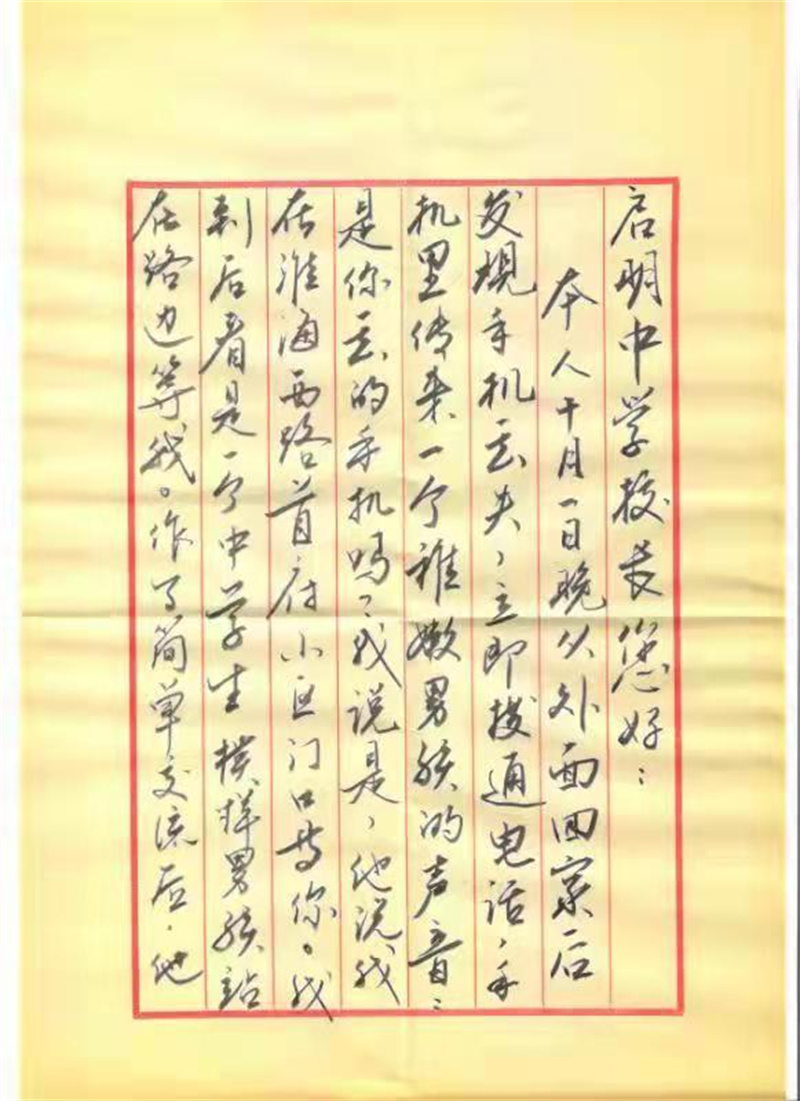 启明中学校长您好：
本人十月一日晚从外面回家后
发现手机丢失，立即拨通电话，手
机里传来一个稚嫩男孩的声音：
是你丢的手机吗？我说是，他说我
在淮海西路首府小区门口等你。我
到后看是一个中学生模样男孩站
在路边等我。作了简单交流后，他